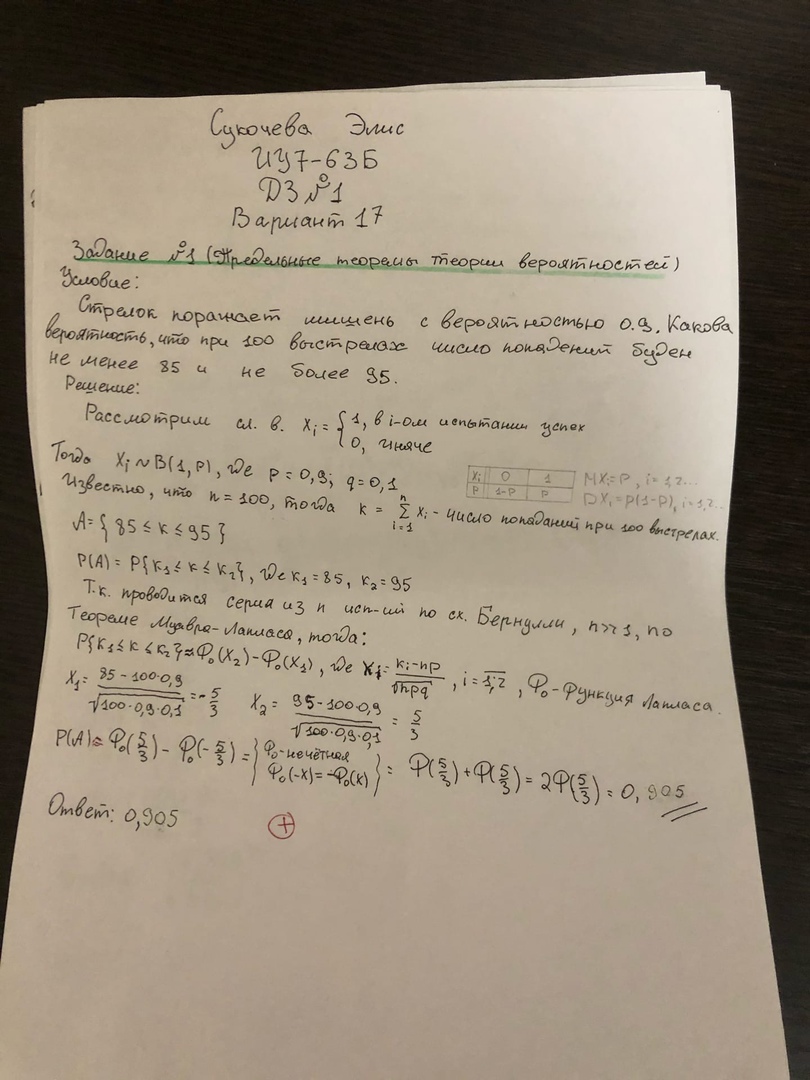 Сукочева Элис
ИУ7-63Б
ДЗ №1
Вариант 17
Задание №1 (Предельные теоремы теории вероятностей)
Условие:
Стрелок поражает мишень с вероятностью 0.9. Какова
вероятность, что при 100 выстрелах число попадений буден
не менее 85 и не более 95.
Решение:
Рассмотрим сл. в. Xᵢ = { 1, в i-ом испытании успех
0, иначе
Тогда Xᵢ ~ B(1, p), где p = 0,9; q = 0,1
Xᵢ 0 1 MXᵢ=p, i=1,2...
P 1-p p DXᵢ=p(1-p), i=1,2...
Известно, что n = 100, тогда k = Σ_{i=1}^{n} Xᵢ - число попаданий при 100 выстрелах.
A = { 85 ≤ k ≤ 95 }
P(A) = P{k₁ ≤ k ≤ k₂}, где k₁ = 85, k₂ = 95
Т.к. проводится серия из n исп-ий по сх. Бернулли, n>>1, по
Теореме Муавра-Лапласа, тогда:
P{k₁ ≤ k ≤ k₂} ≈ Φ₀(X₂) - Φ₀(X₁), где Xᵢ = (kᵢ-np)/√npq, i = 1,2, Φ₀-Функция Лапласа.
X₁ = (85 - 100·0,9)/√(100·0,9·0,1) = -5/3 X₂ = (95 - 100·0,9)/√(100·0,9·0,1) = 5/3
P(A) ≈ Φ₀(5/3) - Φ₀(-5/3) = { Φ₀-нечётная Φ₀(-x) = -Φ₀(x) } = Φ(5/3) + Φ(5/3) = 2Φ(5/3) = 0,905
Ответ: 0,905
+